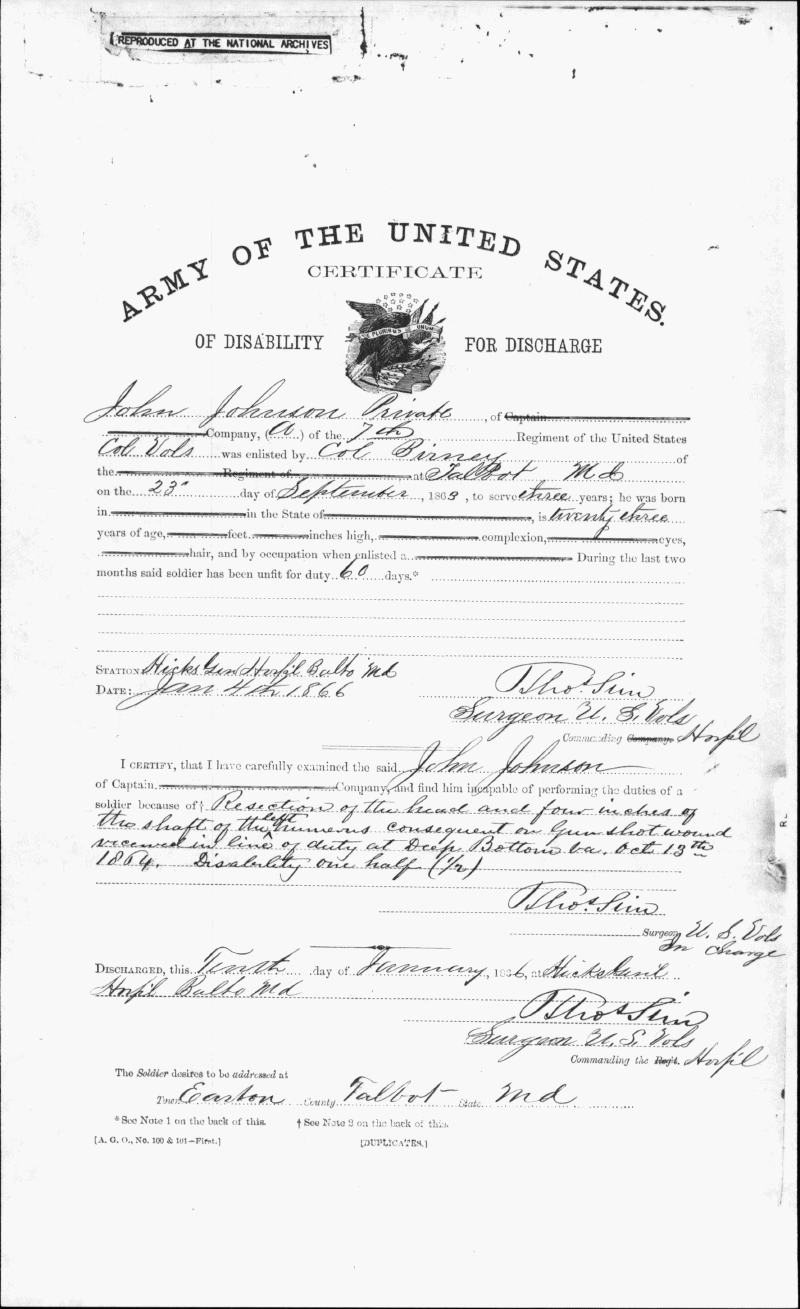 REPRODUCED AT THE NATIONAL ARCHIVES
ARMY OF THE UNITED STATES.
CERTIFICATE
E PLURIBUS UNUM
OF DISABILITY FOR DISCHARGE
John Johnson Private, of Captain
Company, (A) of the 7th Regiment of the United States
Col Vols was enlisted by Col Birney of
the Regiment of at Talbot Md
on the 23" day of September, 1863, to serve three years; he was born
in in the State of , is twenty three
years of age, feet inches high, complexion, eyes,
hair, and by occupation when enlisted a During the last two
months said soldier has been unfit for duty 60 days.*
STATION: Hicks Gen Hospl Balto Md
DATE: Jan 4th 1866
Thos. Sim
Surgeon U. S. Vols
Commanding Company. Hospl
I CERTIFY, that I have carefully examined the said John Johnson
of Captain Company, and find him incapable of performing the duties of a
soldier because of† Resection of the head and four inches of
the shaft of the left humerus consequent on Gun shot wound
received in line of duty at Deep Bottom Va. Oct 13th
1864. Disability one half (1/2)
Thos. Sim
Surgeon U. S. Vols
In Charge
DISCHARGED, this Tenth day of January, 1866, at Hicks Genl
Hospl Balto Md
Thos Sim
Surgeon U. S. Vols
Commanding the Reg't. Hospl
The Soldier desires to be addressed at
Town Easton County Talbot State Md
*See Note 1 on the back of this. † See Note 2 on the back of this.
[A. G. O., No. 100 & 101—First.] [DUPLICATES.]